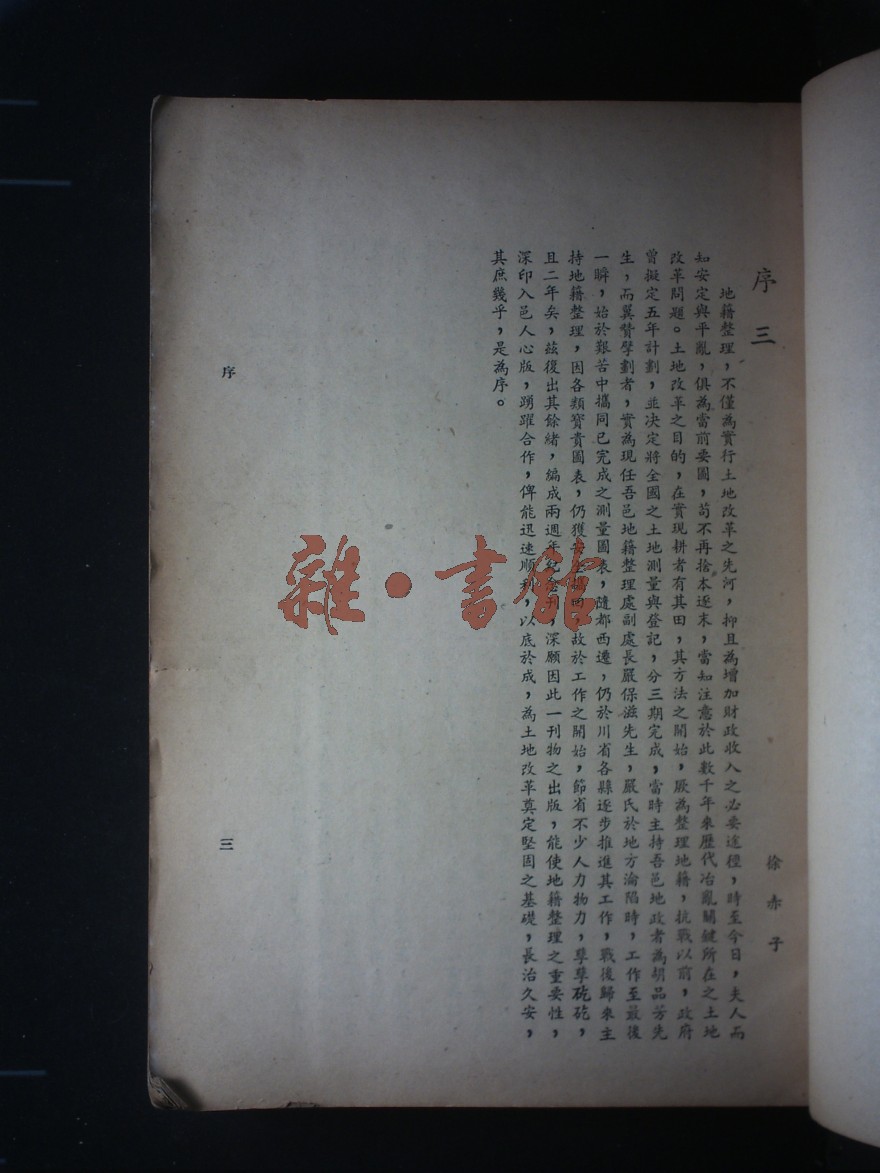 序三
徐赤子
地籍整理，不僅為實行土地改革之先河，抑且為增加財政收入之必要途徑，時至今日，夫人而
知安定與平亂，俱為當前要圖，苟不再捨本逐末，當知注意於此數千年來歷代治亂關鍵所在之土地
改革問題。土地改革之目的，在實現耕者有其田，其方法之開始，厥為整理地籍，抗戰以前，政府
曾擬定五年計劃，並决定將全國之土地測量與登記，分三期完成，當時主持吾邑地政者為胡品芳先
生，而翼贊擘劃者，實為現任吾邑地籍整理處副處長嚴保滋先生，嚴氏於地方淪陷時，工作至最後
一瞬，始於艱苦中攜同已完成之測量圖表，隨都西遷，仍於川省各縣逐步推進其工作，戰後歸來主
持地籍整理，因各類寶貴圖表，仍獲安全攜回，故於工作之開始，節省不少人力物力，孳孳矻矻，
且二年矣，茲復出其餘緒，編成兩週年紀念刊，深願因此一刊物之出版，能使地籍整理之重要性，
深印入邑人心版，踴躍合作，俾能迅速順利，以底於成，為土地改革奠定堅固之基礎，長治久安，
其庶幾乎，是為序。
序
三
雜·書館